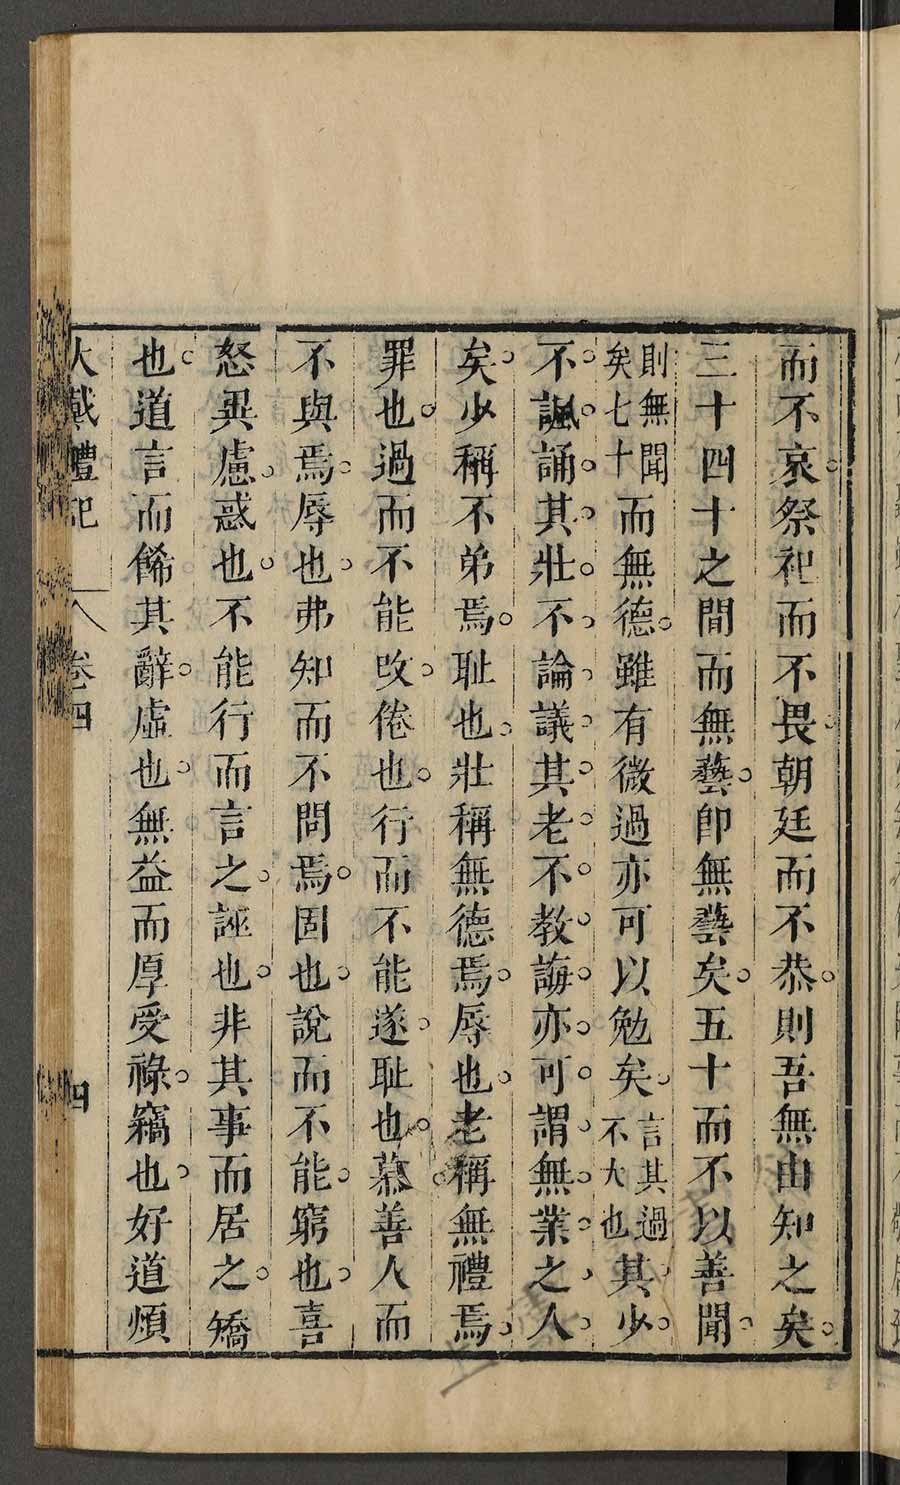 而不哀祭祀而不畏朝廷而不恭則吾無由知之矣
三十四十之間而無藝卽無藝矣五十而不以善聞
則無聞
矣七十
而無德雖有微過亦可以勉矣
言其過
不大也
其少
不諷誦其壯不論議其老不教誨亦可謂無業之人
矣少稱不弟焉耻也壯稱無德焉辱也老稱無禮焉
罪也過而不能改倦也行而不能遂耻也慕善人而
不與焉辱也弗知而不問焉固也說而不能窮也喜
怒異慮惑也不能行而言之誣也非其事而居之矯
也道言而餙其辭虛也無益而厚受祿竊也好道煩
大戴禮記
卷四
四